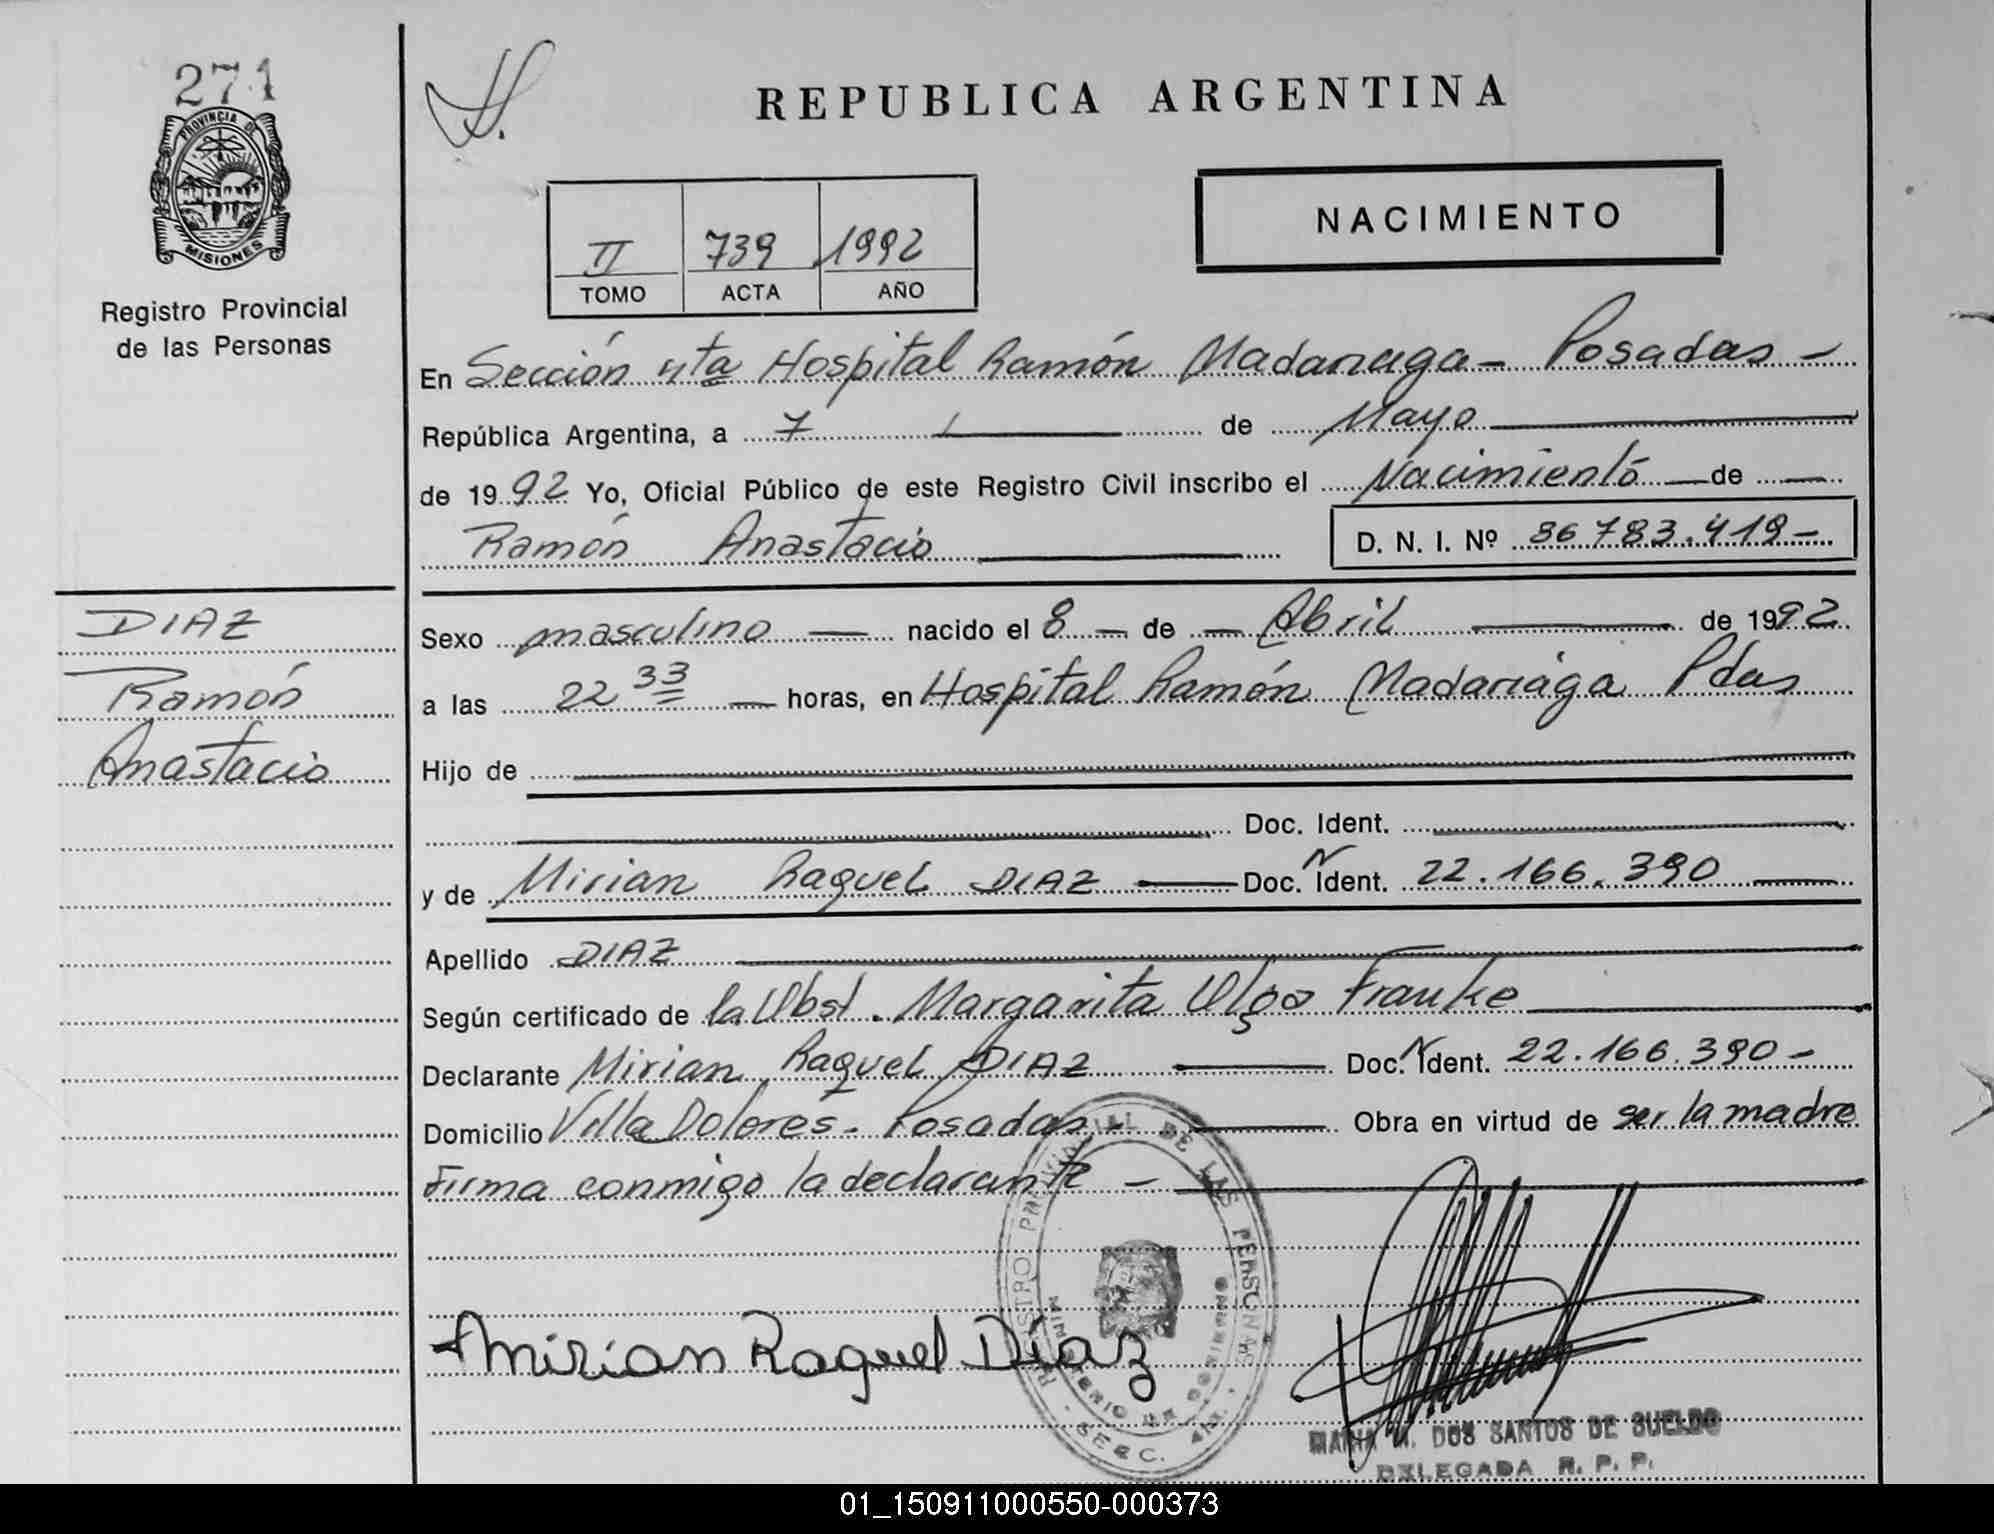 271
PROVINCIA DE
MISIONES
Registro Provincial
de las Personas
REPUBLICA ARGENTINA
NACIMIENTO
II 739 1992
TOMO ACTA AÑO
En Sección 4ta Hospital Ramón Madariaga - Posadas -
República Argentina, a 7 de Mayo
de 1992 Yo, Oficial Público de este Registro Civil inscribo el Nacimiento de
Ramón Anastacio D. N. I. Nº 36783.419-
DIAZ
Ramón
Anastacio
Sexo masculino nacido el 8 de Abril de 1992
a las 22 33 horas, en Hospital Ramón Madariaga Pdas
Hijo de
Doc. Ident.
y de Mirian Raquel DIAZ Doc. N Ident. 22.166.390
Apellido DIAZ
Según certificado de la Obst. Margarita Olga Franke
Declarante Mirian Raquel DIAZ Doc. N Ident. 22.166.390-
Domicilio Villa Dolores - Posadas - Obra en virtud de ser la madre
Firma conmigo la declarante -
REGISTRO PROVINCIAL DE LAS PERSONAS
MINISTERIO DE GOBIERNO
SECC. 4ta.
Mirian Raquel Díaz
DOS SANTOS DE SUELDO
DELEGADA R. P. P.
01_150911000550-000373